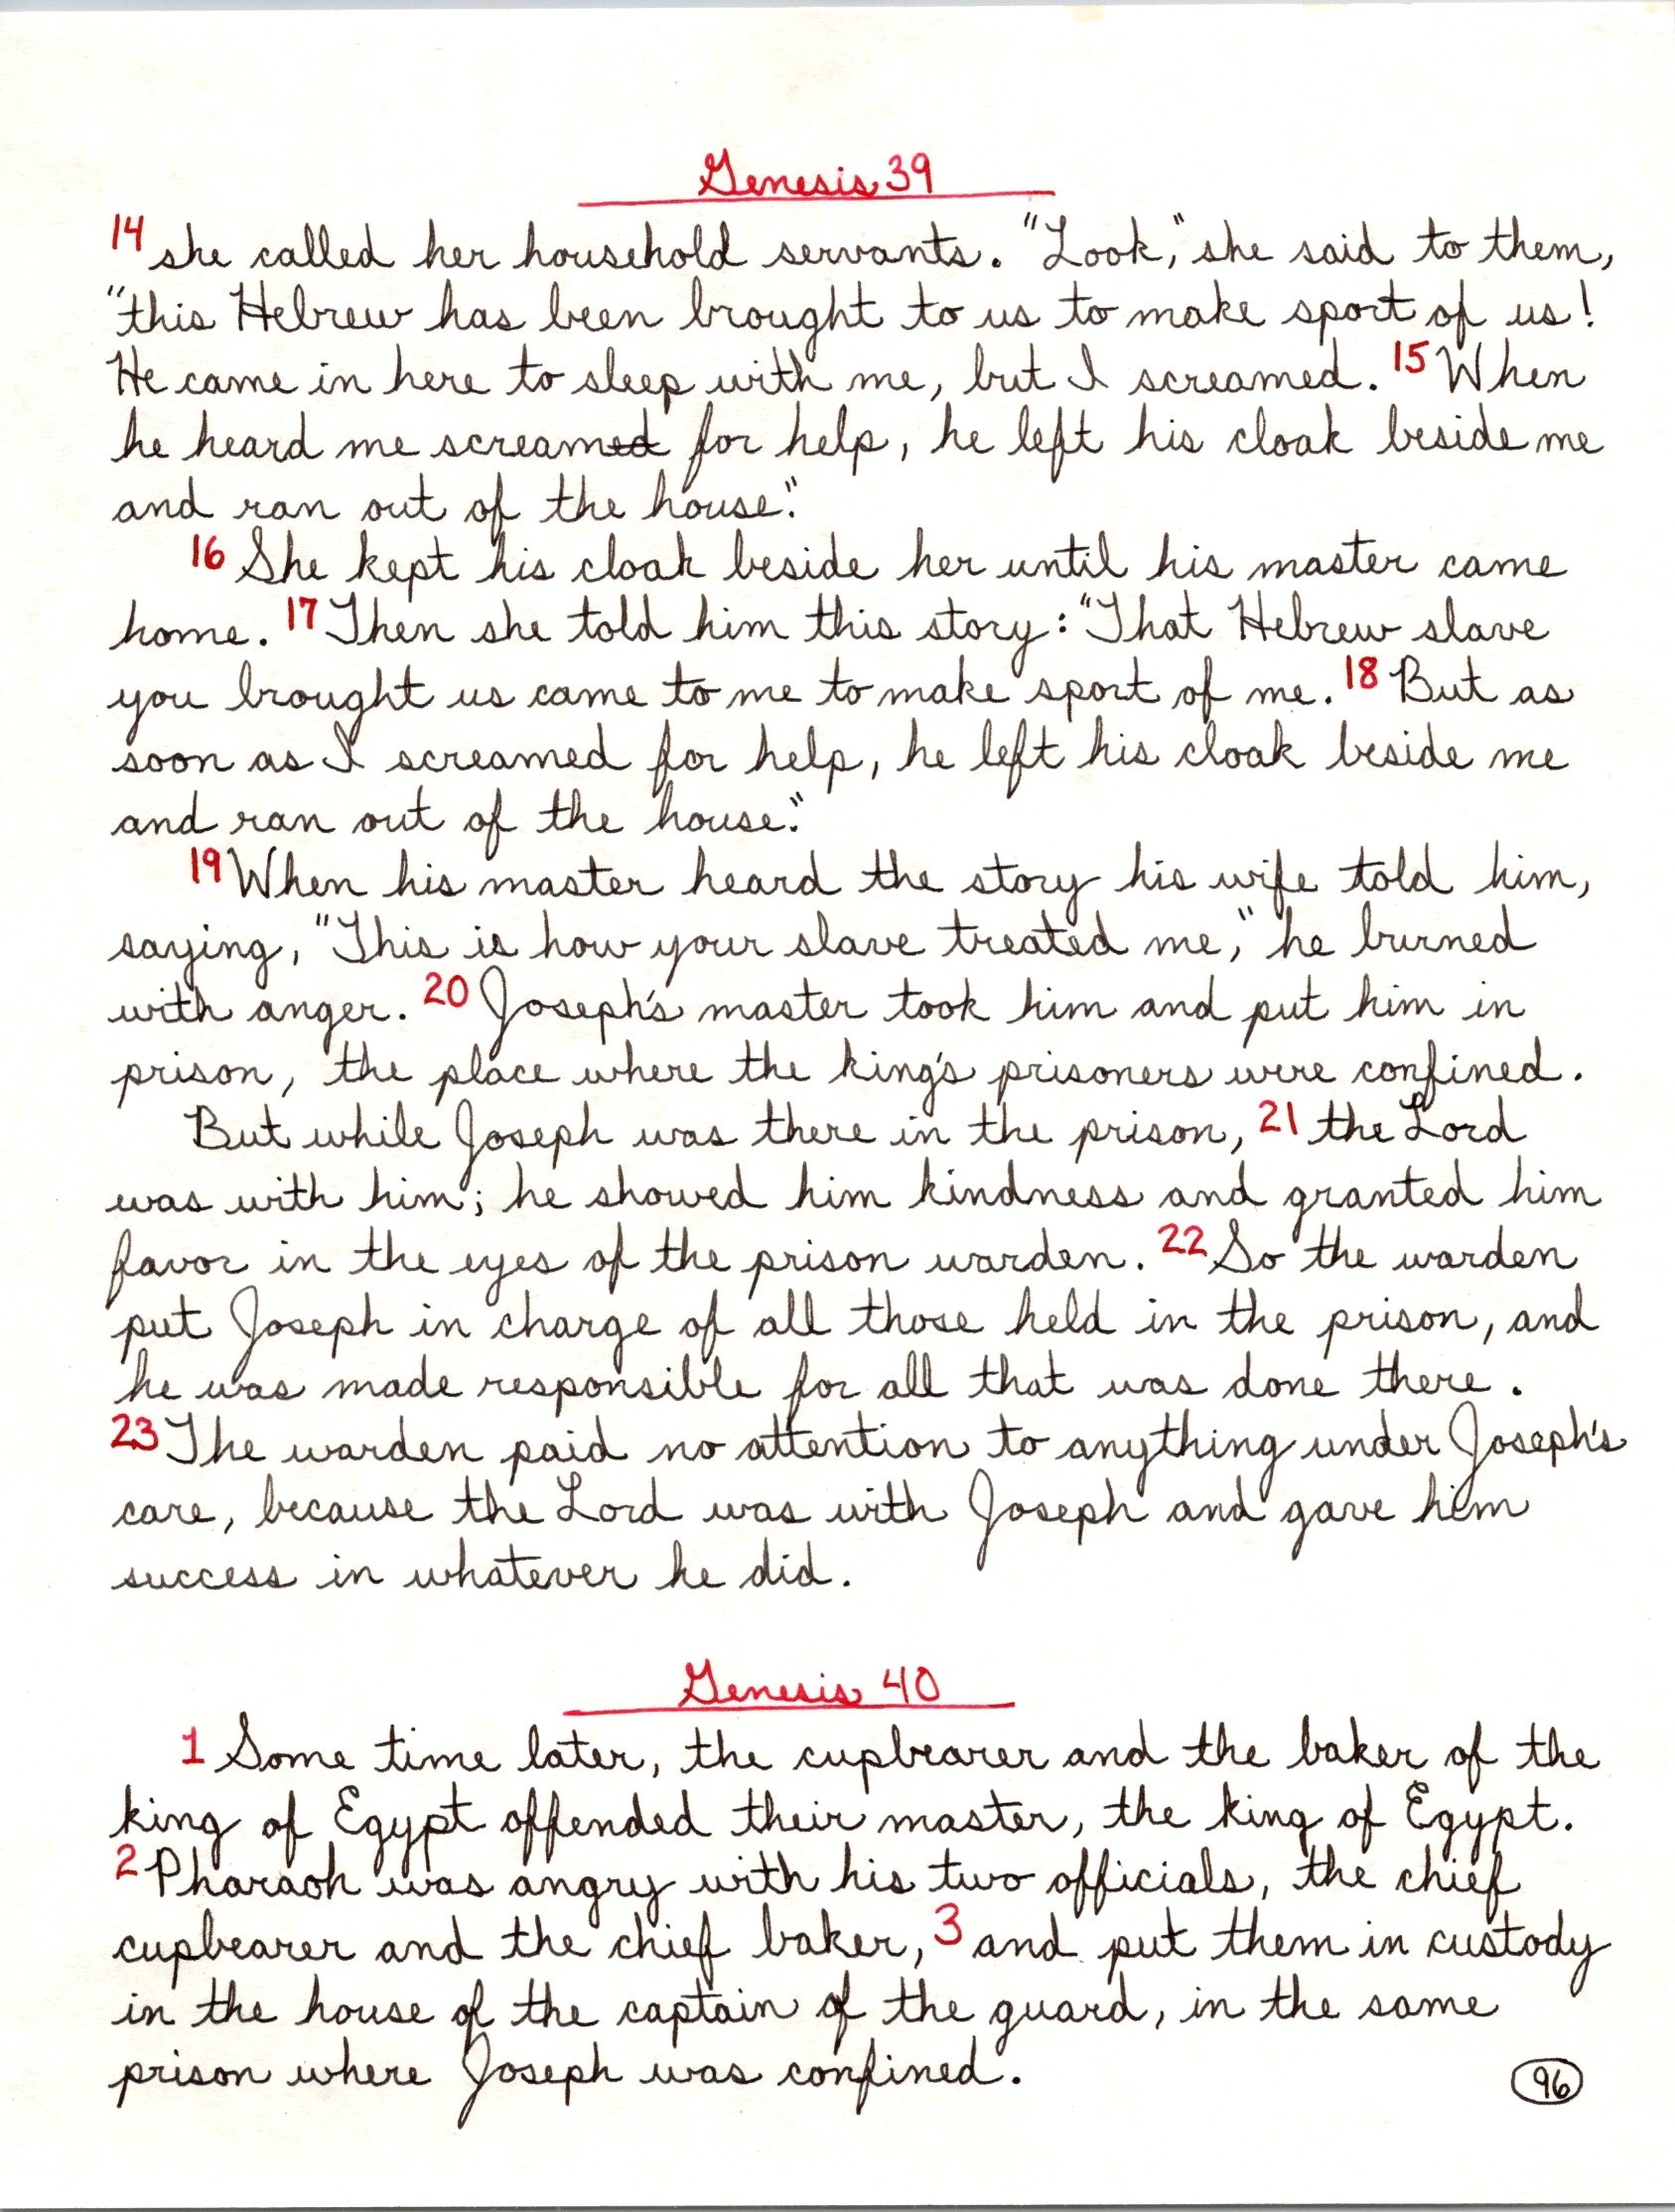 Genesis 39
14 she called her household servants. "Look," she said to them,
"this Hebrew has been brought to us to make sport of us!
He came in here to sleep with me, but I screamed. 15 When
he heard me screamed for help, he left his cloak beside me
and ran out of the house."
16 She kept his cloak beside her until his master came
home. 17 Then she told him this story: "That Hebrew slave
you brought us came to me to make sport of me. 18 But as
soon as I screamed for help, he left his cloak beside me
and ran out of the house."
19 When his master heard the story his wife told him,
saying, "This is how your slave treated me," he burned
with anger. 20 Joseph's master took him and put him in
prison, the place where the king's prisoners were confined.
But while Joseph was there in the prison, 21 the Lord
was with him; he showed him kindness and granted him
favor in the eyes of the prison warden. 22 So the warden
put Joseph in charge of all those held in the prison, and
he was made responsible for all that was done there.
23 The warden paid no attention to anything under Joseph's
care, because the Lord was with Joseph and gave him
success in whatever he did.
Genesis 40
1 Some time later, the cupbearer and the baker of the
king of Egypt offended their master, the king of Egypt.
2 Pharaoh was angry with his two officials, the chief
cupbearer and the chief baker, 3 and put them in custody
in the house of the captain of the guard, in the same
prison where Joseph was confined.
96